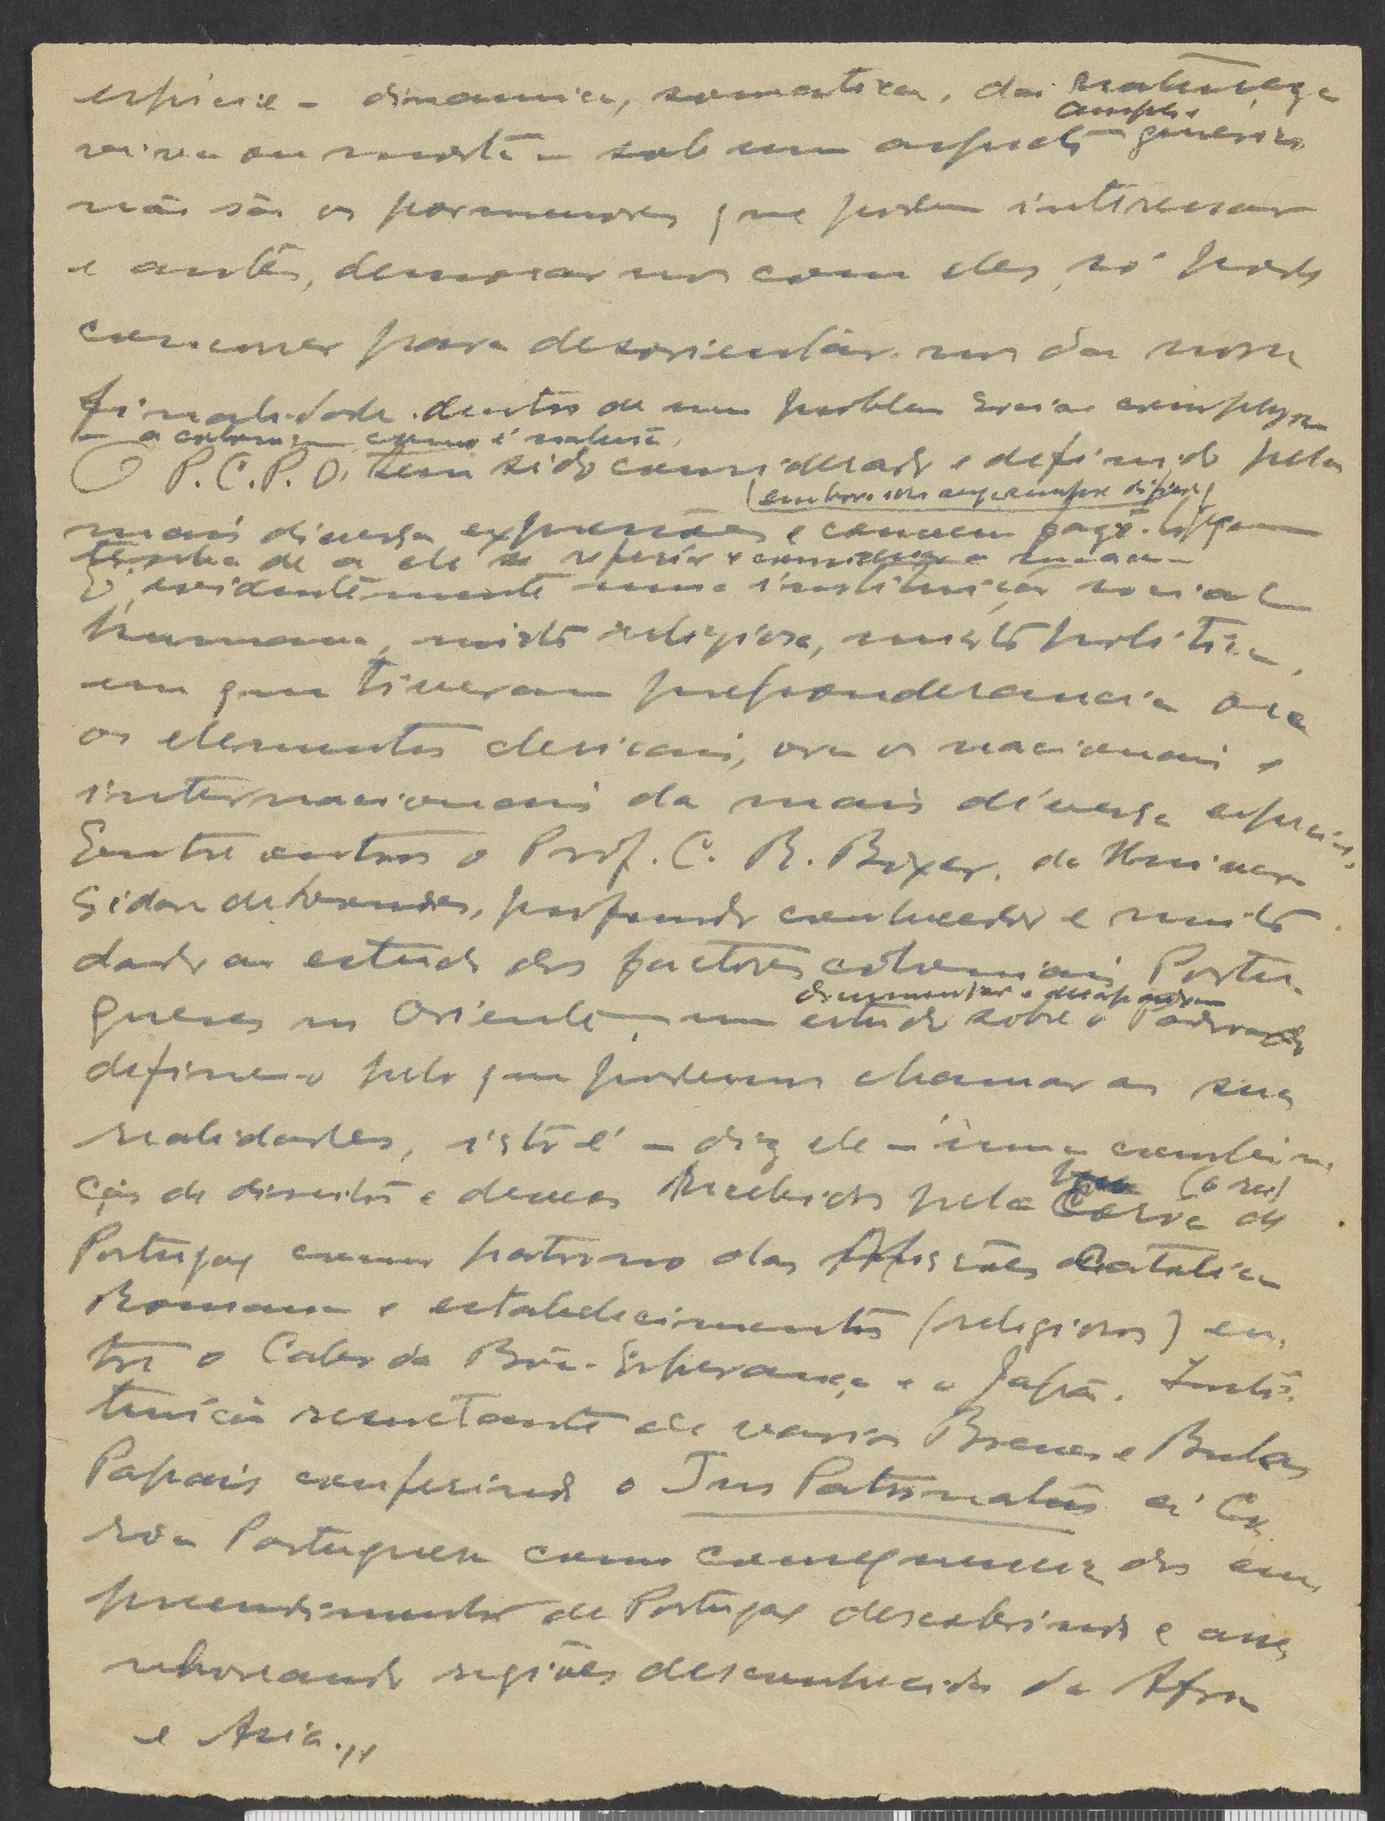 especie - dinamica, somatica, da natureza
viva ou morta - sob um aspecto generico
amplo
não são os pormenores que podem interessar
e antes, demorar nos com eles, só pode
concorrer para desorientar-nos da nossa
finalidade dentro de um problema
como é natural
O P.C.P.O. tem sido considerado e definido pelas
(embora sempre
mais diversas expressões e convem
de a ele se referir e
É evidentemente uma instituição social
humana, misto religiosa, misto politica,
em que tiveram preponderancia ora
os elementos clericais, ora os nacionais e
internacionais da mais diversa especie.
Entre outros o Prof. C. R. Boxer, da Univer
sidade de Londres, profundo conhecedor e muito
dado ao estudo dos factores coloniais Portu-
gueses no Oriente, num estudo sobre o Padroado
documentar e
define-o pelo que podemos chamar as suas
realidades, isto é - diz ele - "uma combina-
ção de direitos e deveres recebidos pela Corôa de
(o rei)
Portugal como patrono das Missões Catolica
Romana e estabelecimentos (religiosos) en-
tre o Cabo da Bôa-Esperança e o Japão. Insti-
tuição resultante de varios Breves e Bulas
Papais conferindo o Jus Patronatus á Co-
rôa Portuguesa como consequencia dos em-
preendimentos de Portugal descobrindo e
regiões desconhecidas da Africa
e Asia."